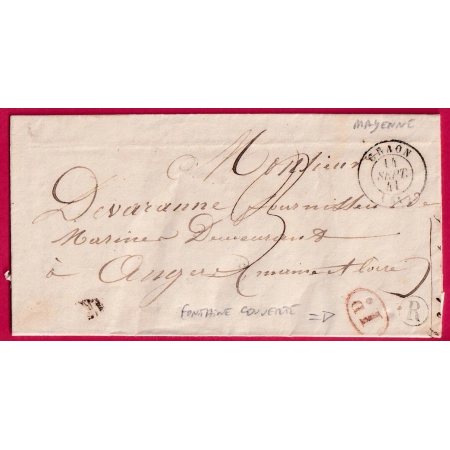 MAYENNE
CRAON
14
SEPT
41
Monsieur
Devaranne fournisseur de
Marine Demeurant
à Angers (maine et loire)
3
FONTAINE COUVERTE =D
I.D
R